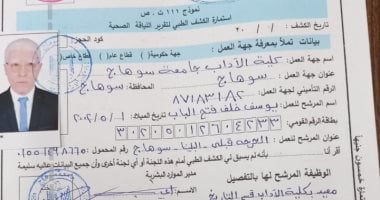 نموذج ١١١ ث . ص
استمارة الكشف الطبي لتقرير اللياقة الصحية
تاريخ الكشف : / / ٢٠
كود الحجز
بيانات تملأ بمعرفة جهة العمل :
جهة حكومية ( ) قطاع عام ( ) قطاع خاص
اسم جهة العمل : كلية الآداب جامعة سوهاج
عنوان جهة العمل : سوهاج المحافظة : سوهاج
الرقم التأميني لجهة العمل : ٨٧١٨٣١٨٢
اسم المرشح للعمل : يوسف خلف فتح الباب تاريخ الميلاد :
بطاقة الرقم القومي : ٣٠٢٠٥٠١٢٦٠٤٢٣٣
سوهاج رقم المحمول :
أقر بأنه لم يسبق لي الكشف الطبي أمام هذه اللجنة أو أي لجنة أخرى وأن جميع البيانات عاليه سليمة
مدير الموارد البشرية
الوظيفة المرشح لها بالتفصيل
معيد بكلية الآداب قسم التاريخ
خمسون جنيها